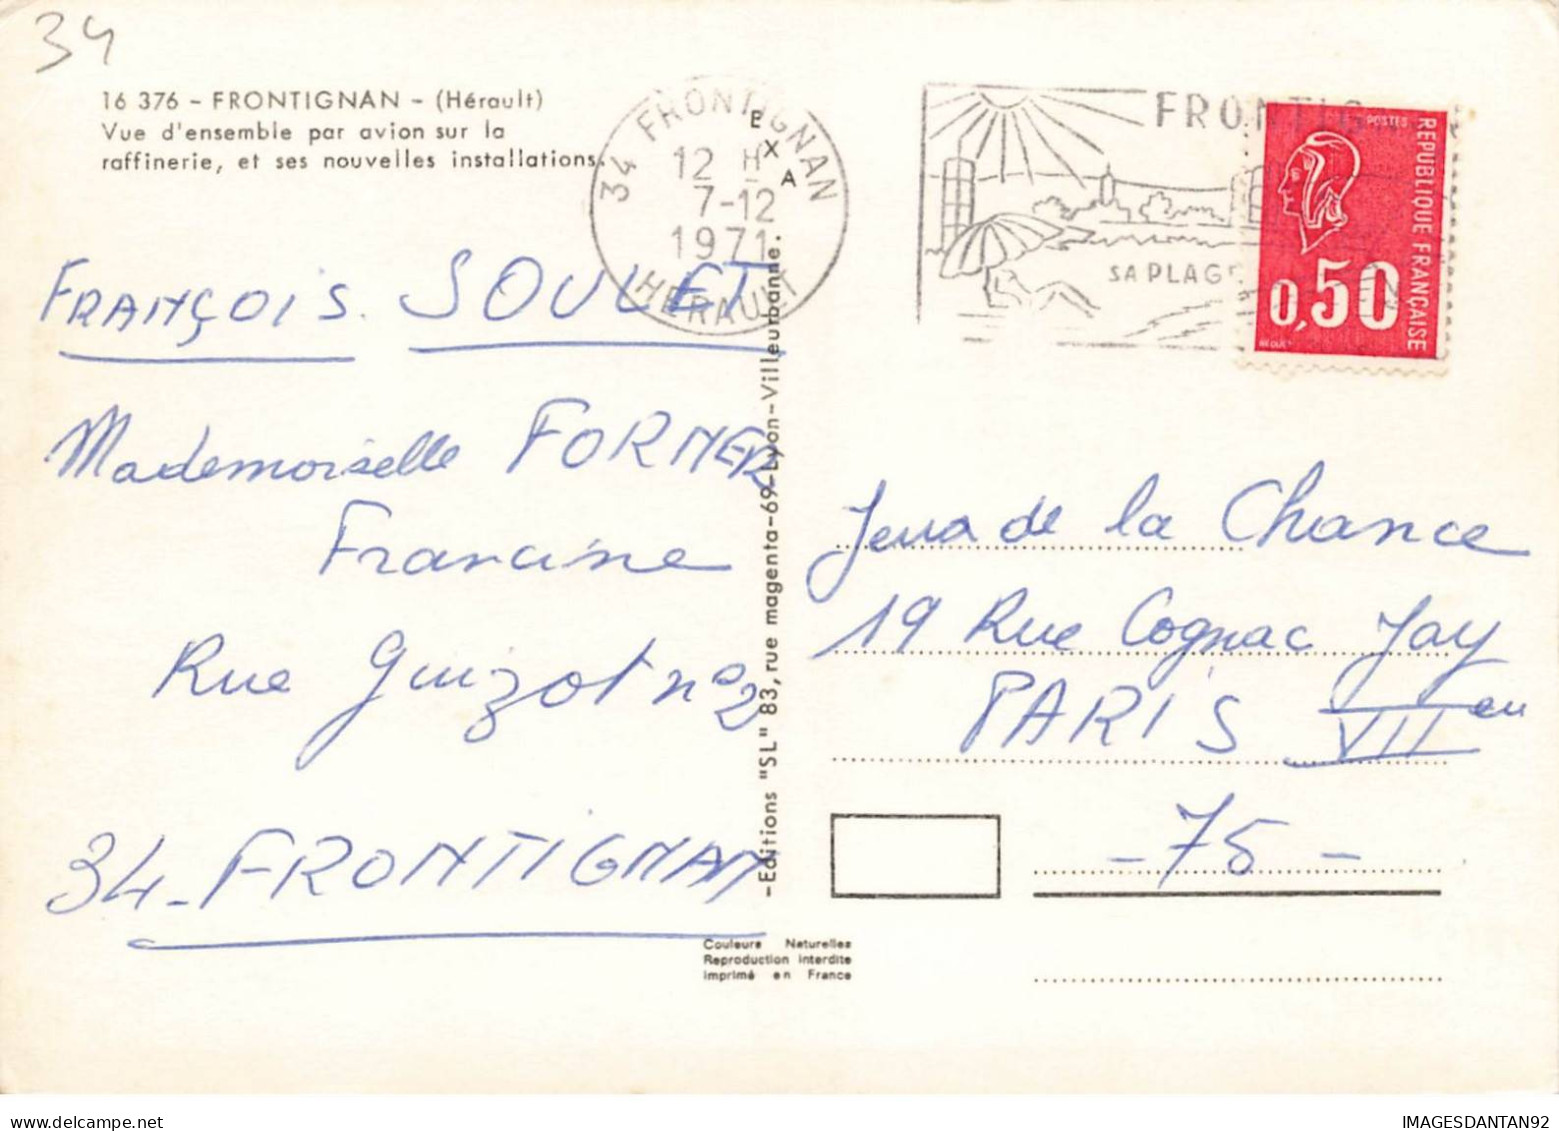 34
16 376 - FRONTIGNAN - (Hérault)
Vue d'ensemble par avion sur la
raffinerie, et ses nouvelles installations.
34 FRONTIGNAN
12 H
7-12
1971
HERAULT
EXA
FRONTIGN
SA PLAGE
POSTES
REPUBLIQUE FRANÇAISE
0,50
FRANÇOIS. SOULET
Mademoiselle FORNER
Francine
Rue Guizot n°2
34_FRONTIGNAN
-Editions "SL" 83, rue magenta-69-Lyon-Villeurbanne.
Jeux de la Chance
19 Rue Cognac Jay
PARIS VII em
- 75 -
Couleurs Naturelles
Reproduction interdite
imprimé en France
delcampe.net
IMAGESDANTAN92